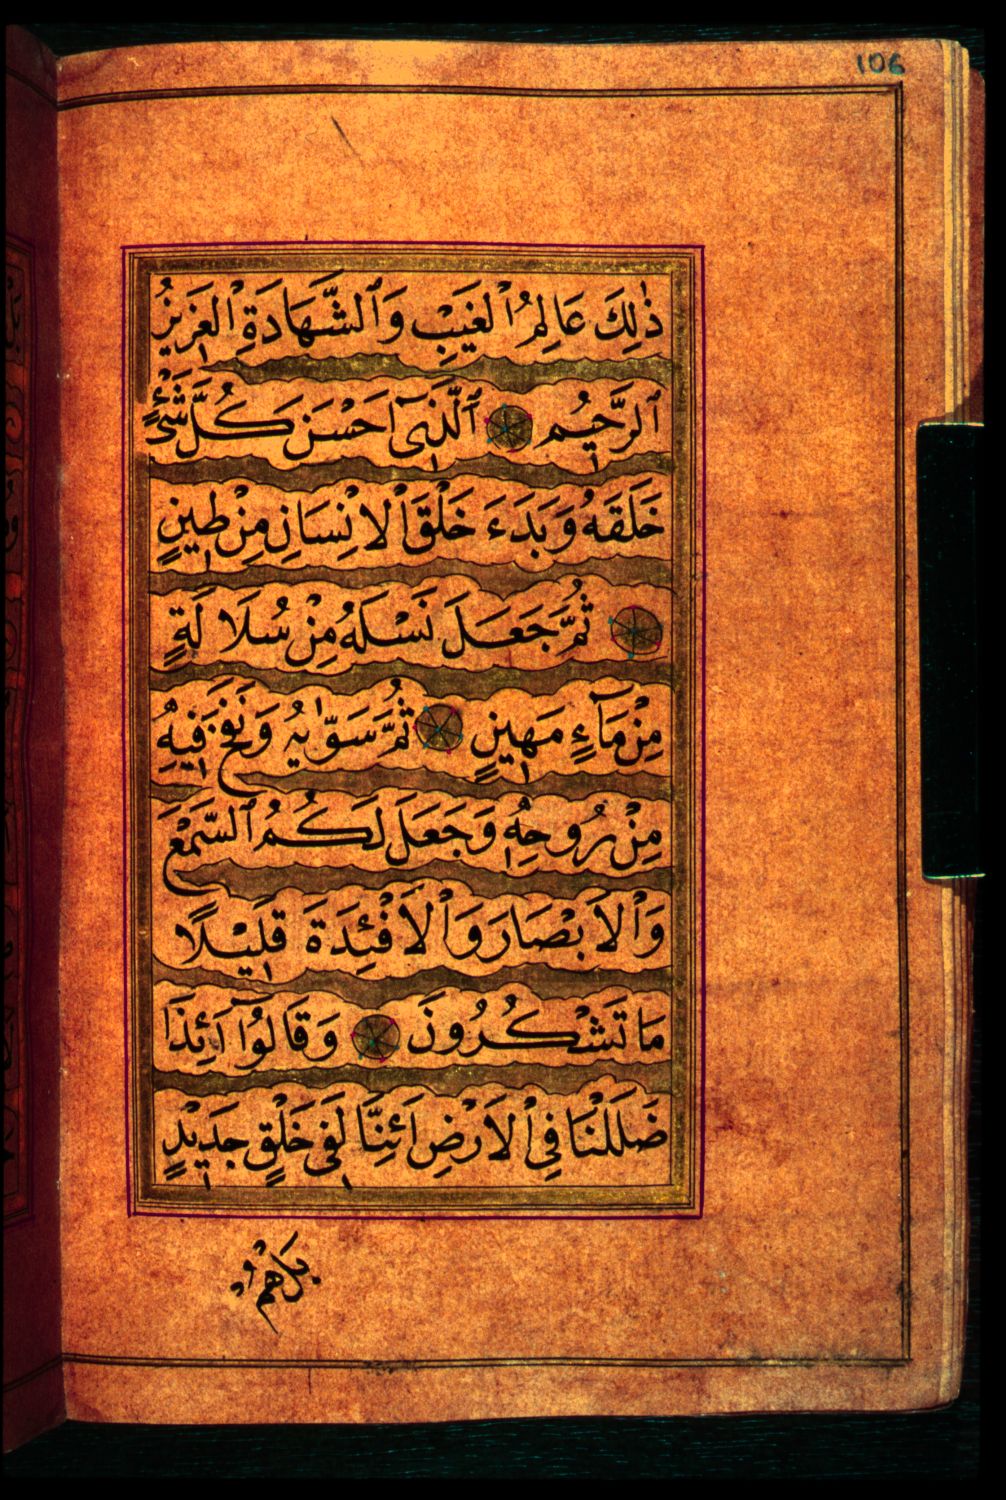 106
ذٰلِكَ عَالِمُ الْغَيْبِ وَالشَّهَادَةِ الْعَزِيزُ
الرَّحِيمُ الَّذِىٓ اَحْسَنَ كُلَّ شَىْءٍ
خَلَقَهُ وَبَدَءَ خَلْقَ الْاِنْسَانِ مِنْ طِينٍ
ثُمَّ جَعَلَ نَسْلَهُ مِنْ سُلَالَةٍ
مِنْ مَآءٍ مَهِينٍ ثُمَّ سَوّٰيهُ وَنَفَخَ فِيهِ
مِنْ رُوحِهِ وَجَعَلَ لَكُمُ السَّمْعَ
وَالْاَبْصَارَ وَالْاَفْئِدَةَ قَلِيْلًا
مَا تَشْكُرُونَ وَقَالُوٓا اَئِذَا
ضَلَلْنَا فِى الْاَرْضِ اَئِنَّا لَفِى خَلْقٍ جَدِيْدٍ
بَلْ هُمْ